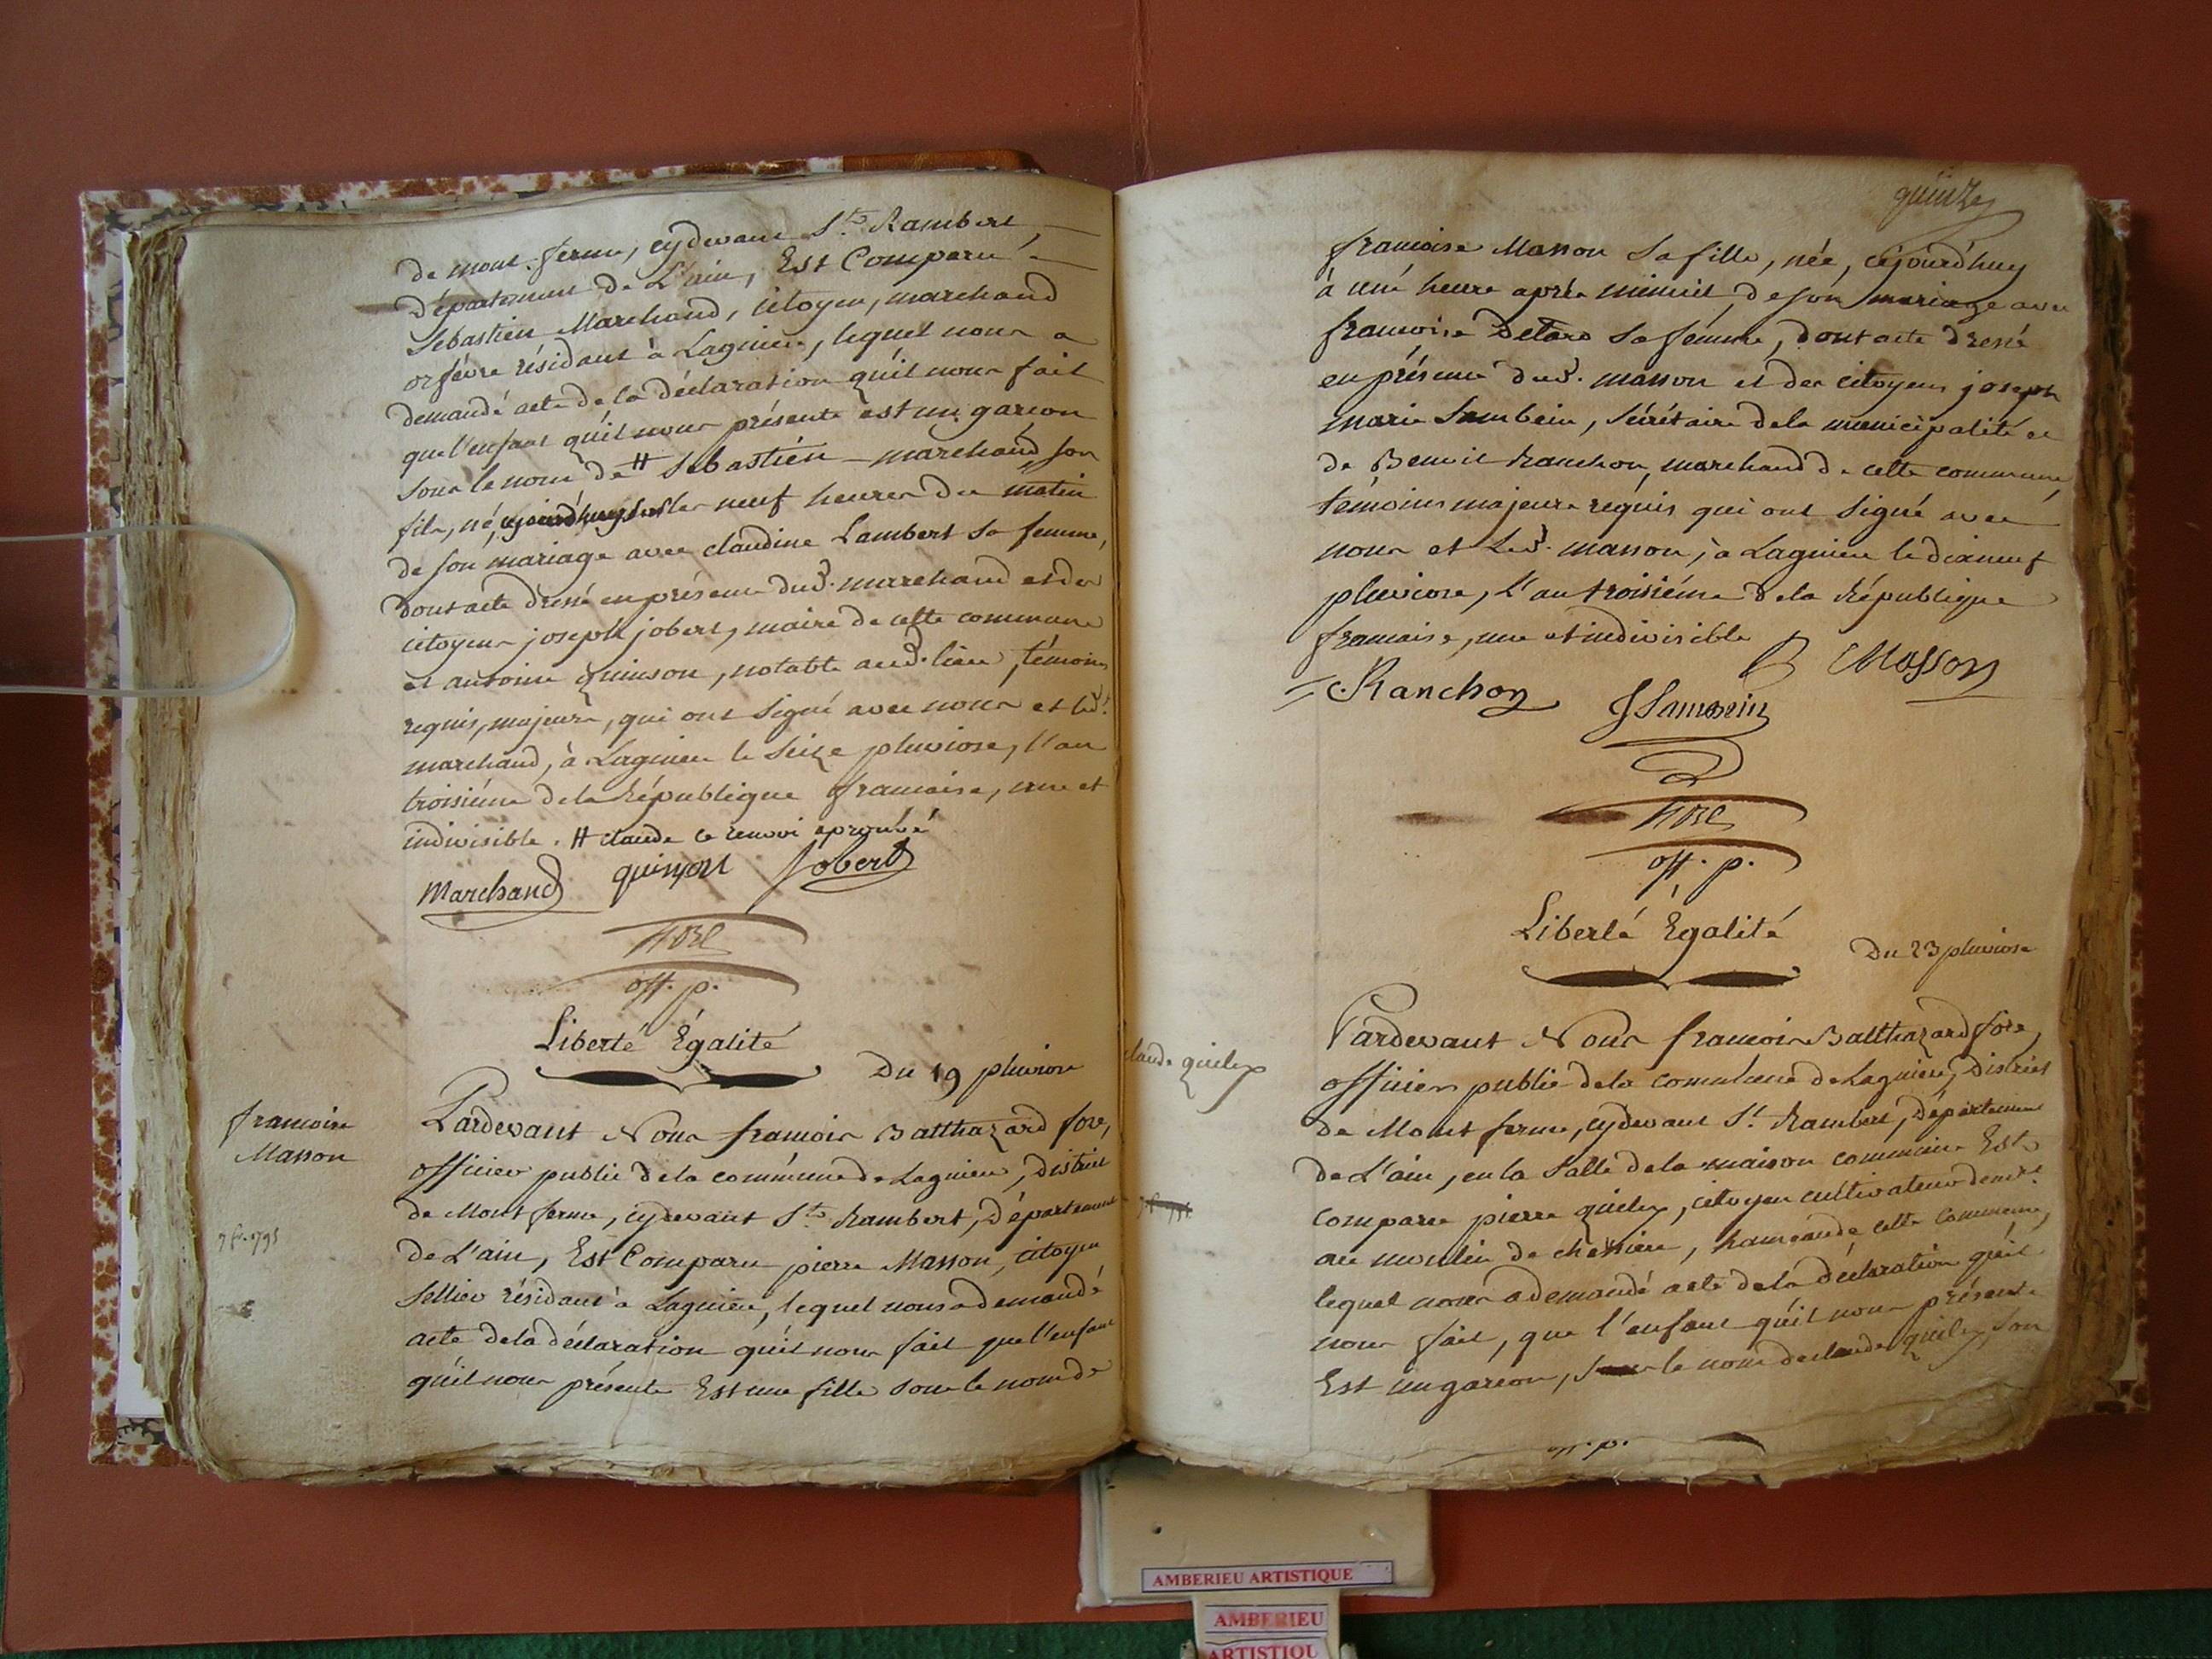 de mont-ferme, cydevant St. Rambert,
Département de L'ain, Est Comparu
Sebastien Marchand, citoyen, marchand
orfévre résidant à Lagnieu, lequel nous a
demandé acte de la déclaration qu'il nous fait
que l'enfant qu'il nous présente est un garcon
sous le nom de # Sebastien marchand son
fils, né, cejourd'huy sur les neuf heures du matin
de son mariage avec claudine Lambert sa femme,
dont acte dressé en présence dud. marchand et des
citoyens joseph jobert, maire de cette commune
et antoine quinson, notable aud. lieu, témoins
requis, majeurs, qui ont signé avec nous et led.
marchand, à Lagnieu le seize pluviose, l'an
troisiéme de la République francaise, une et
indivisible. # claude le renvoi aprouvé
Marchand quinson Jobert
off. p.
Liberté Égalité
Du 19 pluviose
francoise
Masson
Pardevant Nous francois Balthazard fore,
officier public de la commune de Lagnieu, District
de Mont ferme, cydevant St. Rambert, Département
de L'ain, Est Comparu pierre Masson, citoyen
sellier résidant à Lagnieu, lequel nous a demandé
acte de la déclaration qu'il nous fait que l'enfant
qu'il nous présente Est une fille sous le nom de
quinze
francoise Masson sa fille, née, cejourd'huy
à une heure aprés minuit, de son mariage avec
francoise sa fémme, dont acte dressé
en présence dud. masson et des citoyens joseph
marie Sambein, sécrétaire de la municipalité et
de Benoit Ranchon, marchand de cette commune,
témoins majeurs requis qui ont signé avec
nous et led. masson, à Lagnieu le dixneuf
pluviose, l'an troisiéme de la République
francaise, une et indivisible
Masson
Ranchon JSambein
off. p.
Liberté Égalité
Du 23 pluviose
claude quilex
Pardevant Nous francois Balthazard fore,
officier public de la commune de Lagnieu, District
de Mont ferme, cydevant St. Rambert, Département
de L'ain, en la salle de la maison commune Est
comparu pierre quilex, citoyen cultivateur demt.
au moulin de chessieu, hameau de cette commune,
lequel nous a demandé acte de la déclaration qu'il
nous fait, que l'enfant qu'il nous présente
Est un garcon, sous le nom de claude quilex, son
off. p.
AMBERIEU ARTISTIQUE
AMBERIEU
ARTISTIQU